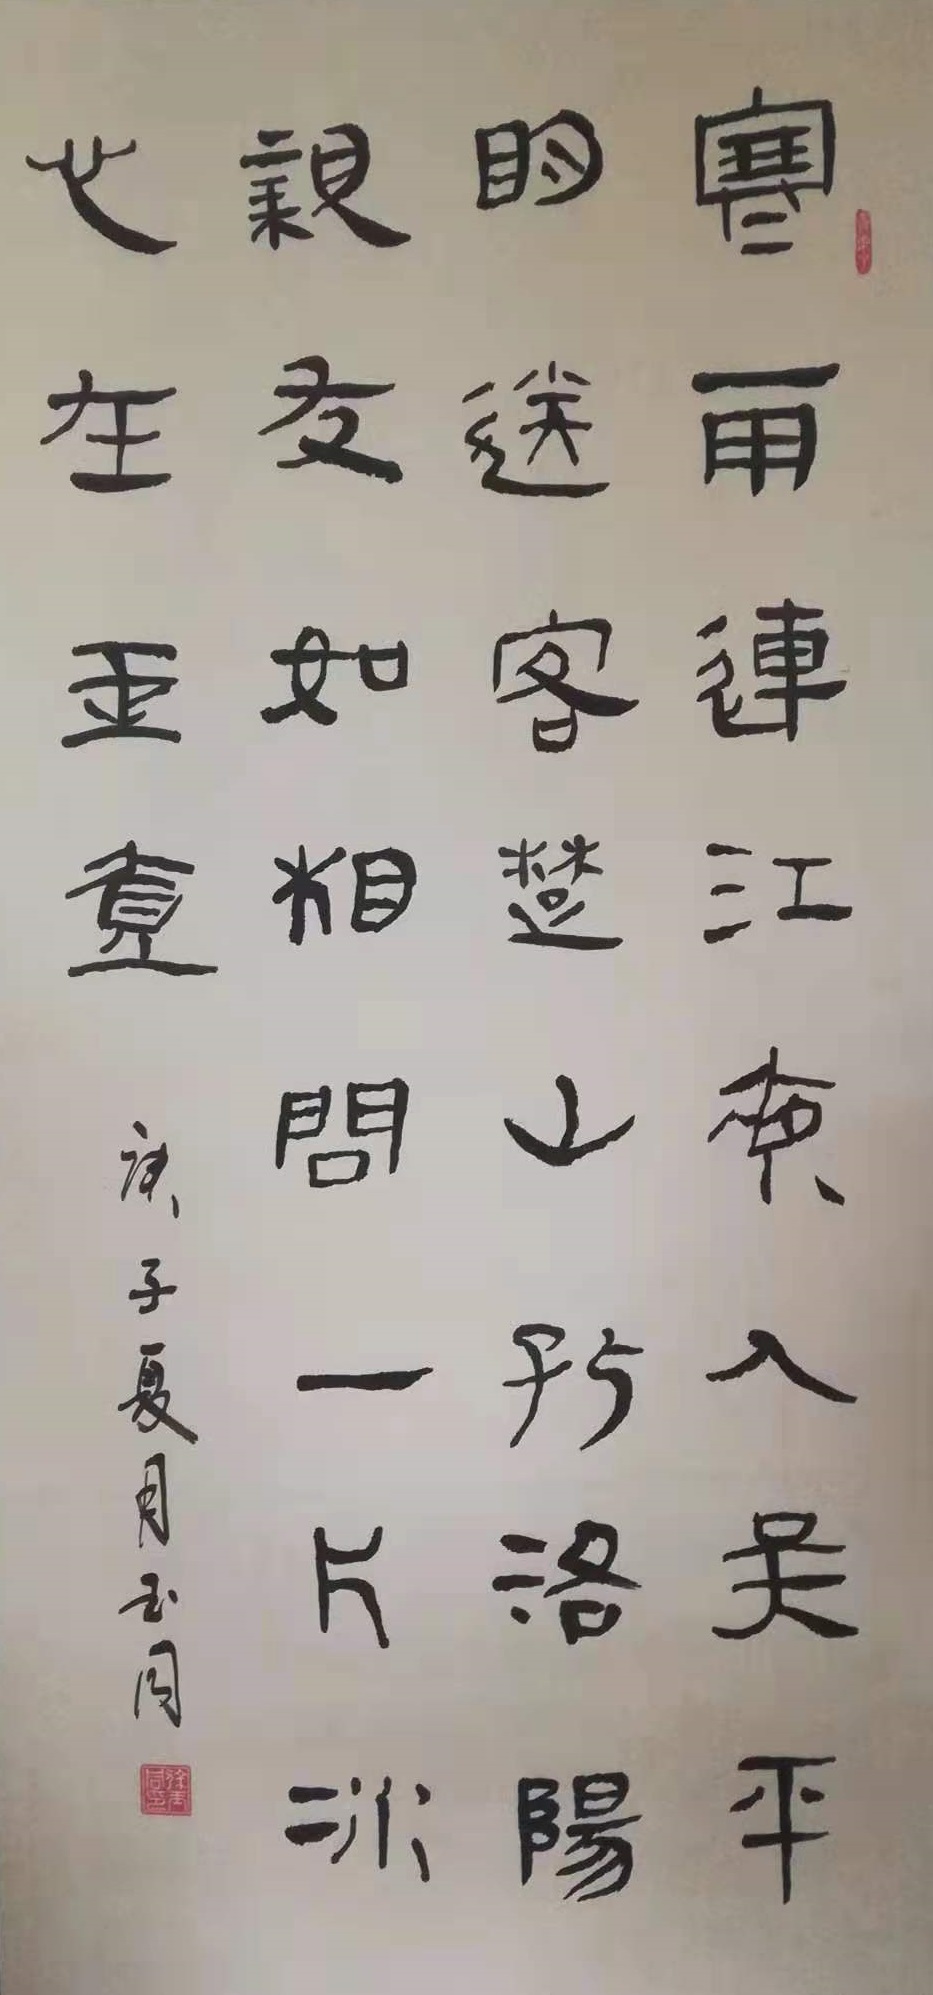 寒雨連江夜入吴平
眀送客楚山孤洛陽
親友如相問一片冰
心在玉壺
庚子夏月玉同
徐玉同印